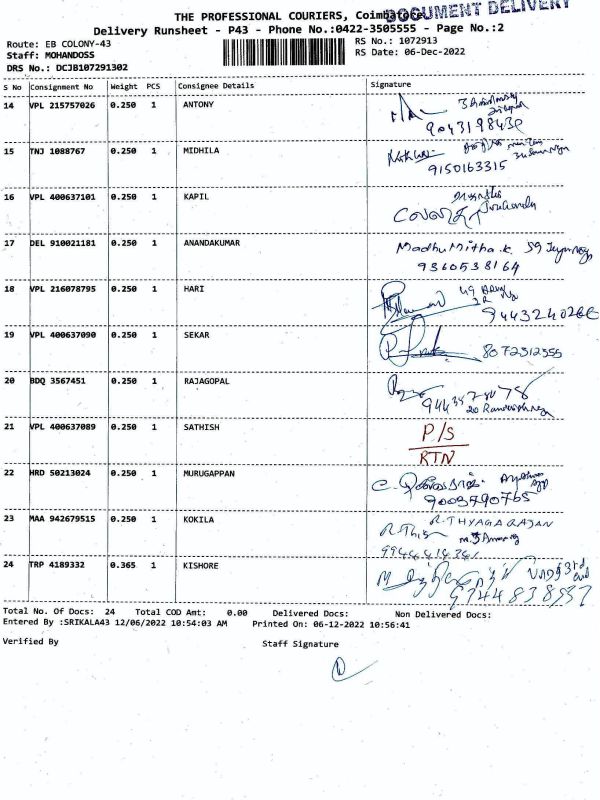 DOCUMENT DELIVERY
THE PROFESSIONAL COURIERS, Coimbatore
Delivery Runsheet - P43 - Phone No.:0422-3505555 - Page No.:2
Route: EB COLONY-43
RS No.: 1072913
Staff: MOHANDOSS
RS Date: 06-Dec-2022
DRS No.: DCJB107291302
S No Consignment No Weight PCS Consignee Details Signature
14 VPL 215757026 0.250 1 ANTONY
15 TNJ 1088767 0.250 1 MIDHILA
9150163315
16 VPL 400637101 0.250 1 KAPIL
17 DEL 910021181 0.250 1 ANANDAKUMAR MadhuMitha.k. 59
9360538164
18 VPL 216078795 0.250 1 HARI
19 VPL 400637090 0.250 1 SEKAR
8072312555
20 BDQ 3567451 0.250 1 RAJAGOPAL
21 VPL 400637089 0.250 1 SATHISH P/S
RTN
22 HRD 50213024 0.250 1 MURUGAPPAN
9003790765
23 MAA 942679515 0.250 1 KOKILA R.THYAGARAJAN
24 TRP 4189332 0.365 1 KISHORE
Total No. Of Docs: 24 Total COD Amt: 0.00 Delivered Docs: Non Delivered Docs:
Entered By :SRIKALA43 12/06/2022 10:54:03 AM Printed On: 06-12-2022 10:56:41
Verified By Staff Signature